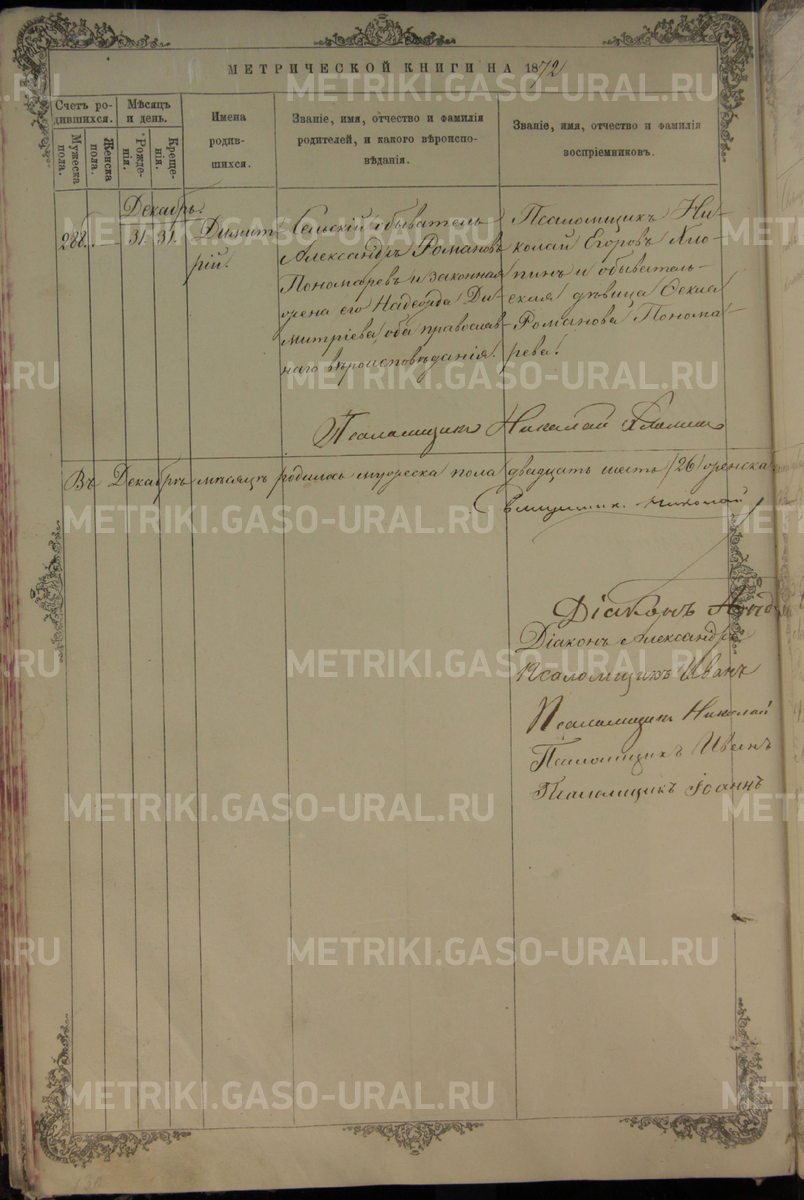 МЕТРИЧЕСКОЙ КНИГИ НА 1872
Счетъ родившихся.
Мужеска пола.
Женска пола.
Мѣсяцъ и день.
Рожденія.
Крещенія.
Имена
родив-
шихся.
Званіе, имя, отчество и фамилія
родителей, и какого вѣроиспо-
вѣданія.
Званіе, имя, отчество и фамилія
воспріемниковъ.
Декабрь.
288. — 31. 31.
Димит-
рій.
Сельскій обыватель
Александръ Романовъ
Пономаревъ и законная
жена его Надежда Ди-
митріева, оба православ-
наго вѣроисповѣданія.
Псаломщикъ Ни-
колай Егоровъ
и обыватель-
ская дѣвица Фекла
Романова Понома-
рева.
Псаломщикъ Николай
Въ Декабрѣ мѣсяцѣ родилось мужеска пола двадцать шесть /26/ женска
Николай
Діаконъ
Діаконъ Александръ
Псаломщикъ Иванъ
Псаломщикъ Николай
Псаломщикъ Иванъ
Псаломщикъ Іоаннъ
METRIKI.GASO-URAL.RU